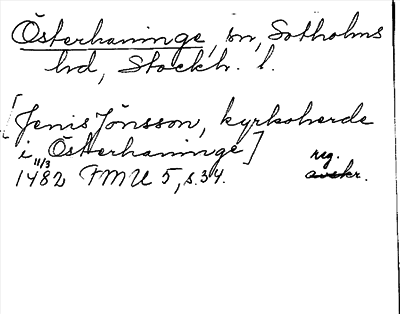 Österhaninge, sn, Sotholms
hd, Stockh. l.
[Jenis Jönsson, kyrkoherde
i Österhaninge]
11/3
1482 FMU 5, s. 34. reg.
avskr.